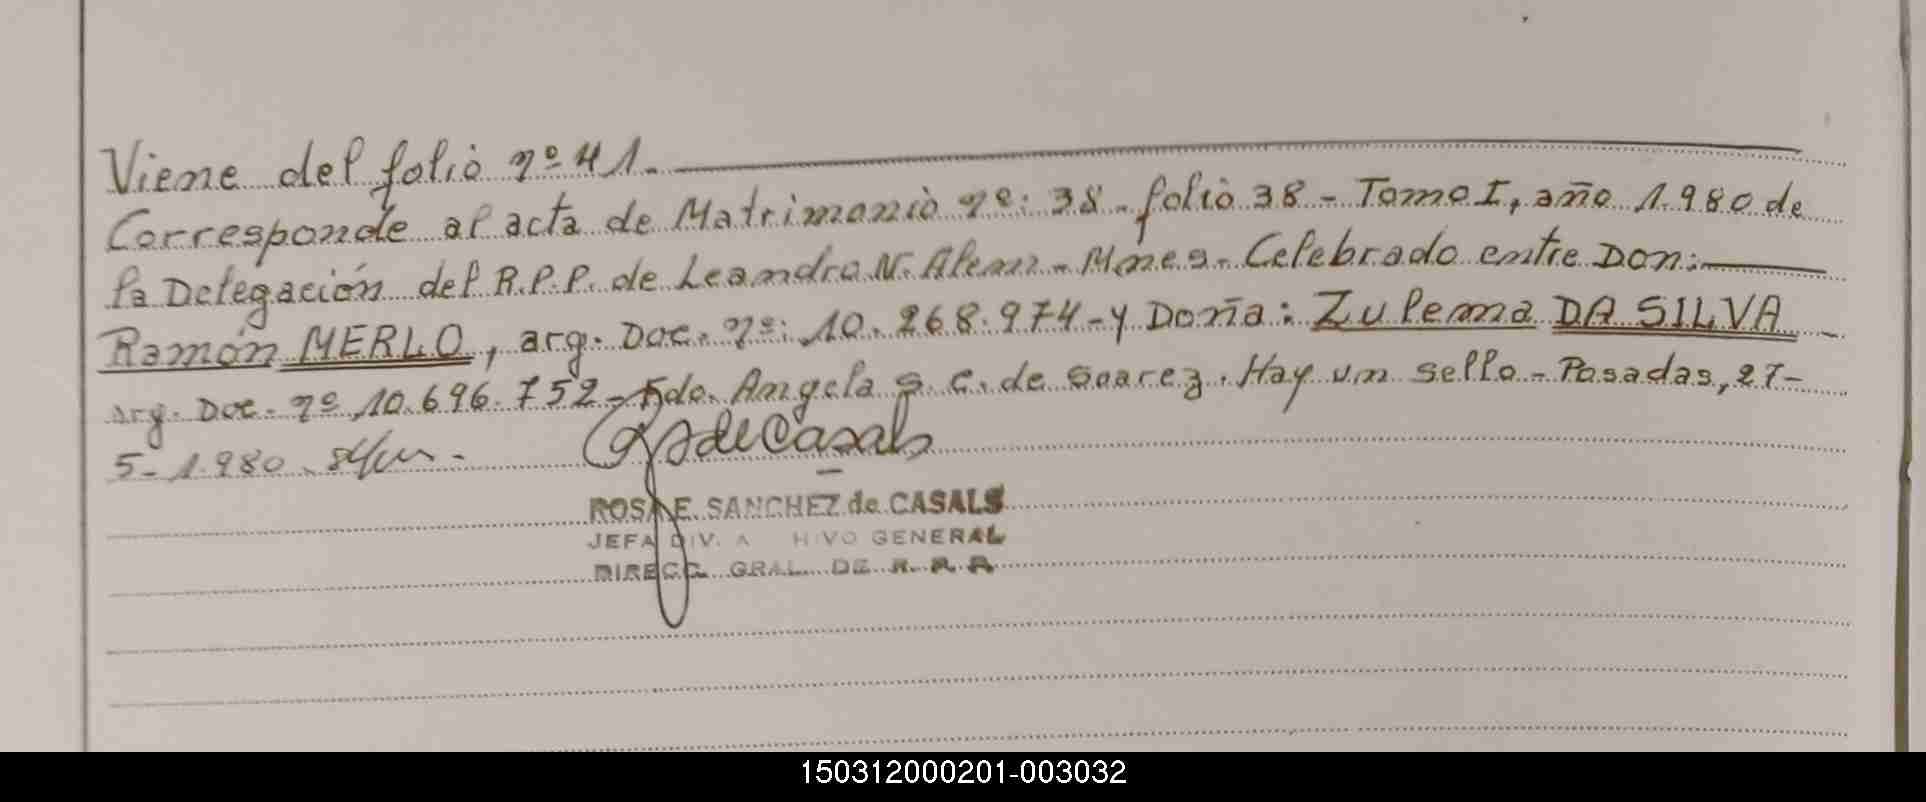 Viene del folio nº 41.
Corresponde al acta de Matrimonio nº: 38 - folio 38 - Tomo I, año 1.980 de
la Delegación del R.P.P. de Leandro N. Alem - Mnes. Celebrado entre Don:
Ramón MERLO, arg. Doc. nº: 10.268.974 - y Doña: Zulema DA SILVA
arg. Doc. nº 10.696.752 - Fdo. Angela S. C. de Soarez. Hay un sello - Posadas, 27-
5-1.980.
de Casals
ROSA E. SANCHEZ de CASALS
JEFA DIV. A HIVO GENERAL
DIRECC. GRAL. DE R. P. P.
150312000201-003032